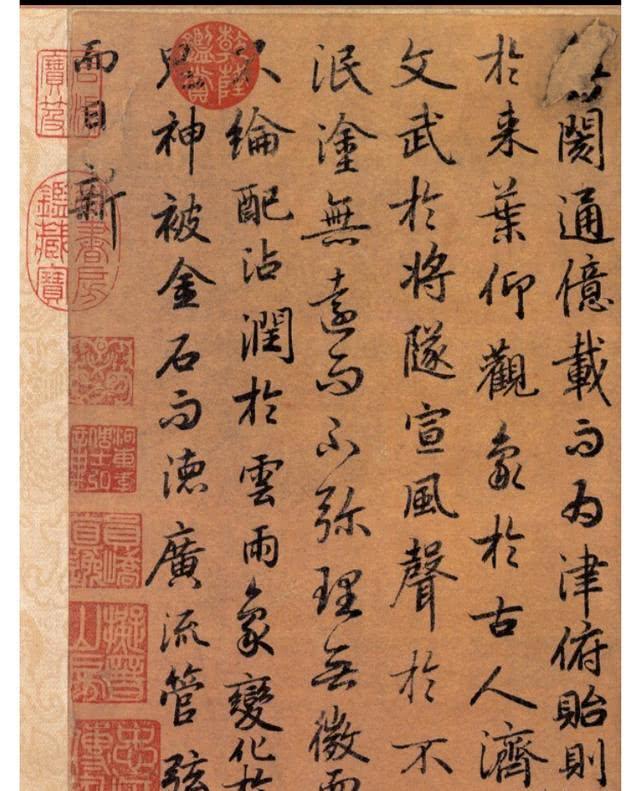 閡通億載而为津俯貽則
於来葉仰觀象於古人濟
文武於将隊宣風聲於不
泯塗無遠而不弥理无微而
不綸配沾潤於雲雨象變化於
鬼神被金石而徳廣流管弦
而日新
乾隆鑑賞
石渠寶笈
御書房鑑藏寶